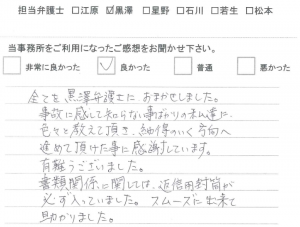 担当弁護士 □江原 ☑黒澤 □星野 □石川 □若生 □松本
当事務所をご利用になったご感想をお聞かせ下さい。
□ 非常に良かった ☑ 良かった □ 普通 □ 悪かった
全てを黒澤弁護士におまかせしました。
事故に感して知らない事ばかりの私達に、
色々と教えて頂き、納得のいく方向へ
進めて頂けた事に感謝しています。
有難うございました。
書類関係に関しては、返信用封筒が
必ず入っていました。スムーズに出来て
助かりました。